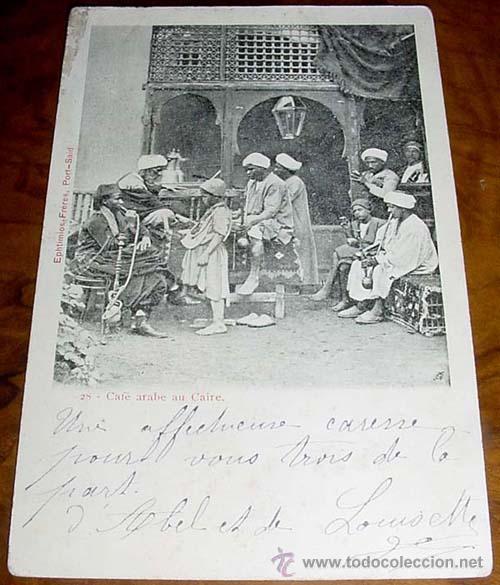 Ephtimios Frères, Port-Saïd
28 - Café arabe au Caire.
Une affectueuse caresse
pour vous trois de la
part.
d'Abel et de Louisette
© www.todocoleccion.net